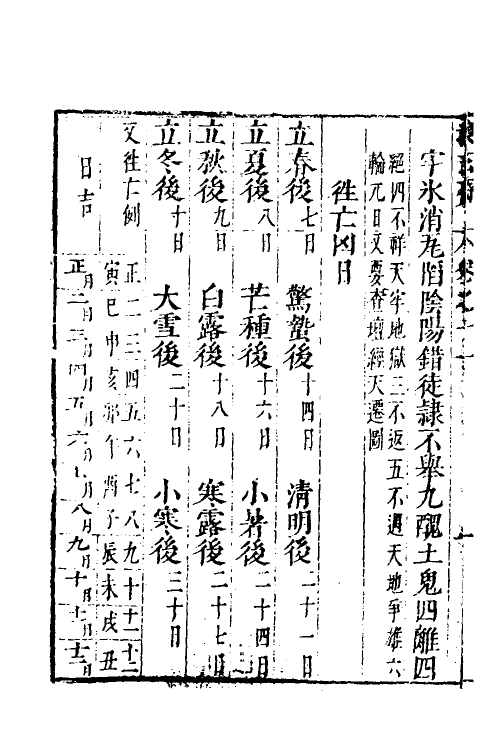 字氷消瓦陷陰陽錯徒隷不舉九醜土鬼四離四
絕四不祥天牢地獄二不返五不遇天地爭雄六
輪元日又要查壇經天遷圖
徃亡凶日
立春後七日 驚蟄後十四日 清明後二十一日
立夏後八日 芒種後十六日 小暑後二十四日
立秋後九日 白露後十八日 寒露後二十七日
立冬後十日 大雪後二十日 小寒後三十日
又徃亡例 正二三四五六七八九十十一十二
寅巳申亥卯午酉子辰未戌丑
日吉 正月二月三月四月五月六月七月八月九月十月十一月十二月